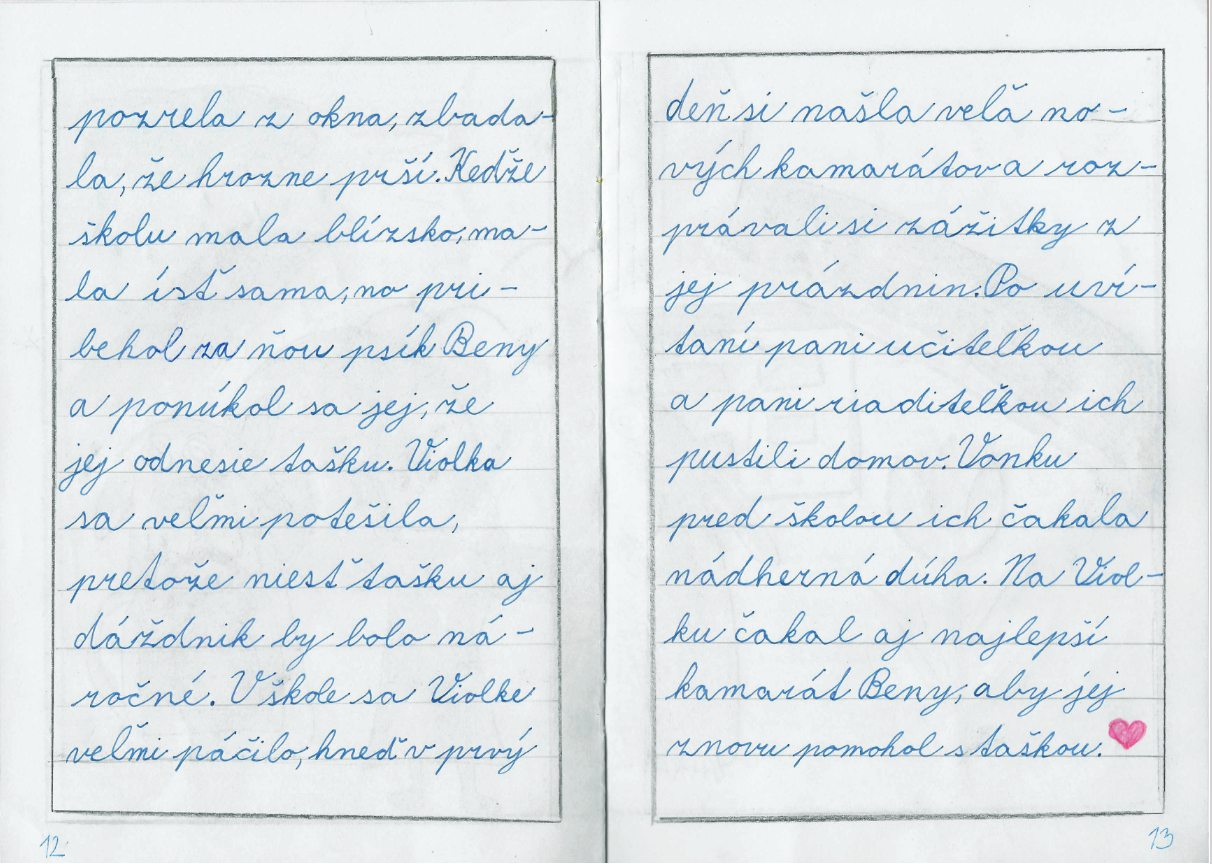 pozrela z okna, zbada-
la, že hrozne prší. Keďže
školu mala blízsko, ma-
la ísť sama, no pri-
behol za ňou psík Beny
a ponúkol sa jej, že
jej odnesie tašku. Violka
sa veľmi potešila,
pretože niesť tašku aj
dáždnik by bolo ná-
ročné. V škole sa Violke
veľmi páčilo, hneď v prvý
12
deň si našla veľa no-
vých kamarátov a roz-
právali si zážitky z
jej prázdnin. Po uví-
taní pani učiteľkou
a pani riaditeľkou ich
pustili domov. Vonku
pred školou ich čakala
nádherná dúha. Na Viol-
ku čakal aj najlepší
kamarát Beny, aby jej
znovu pomohol s taškou.
13